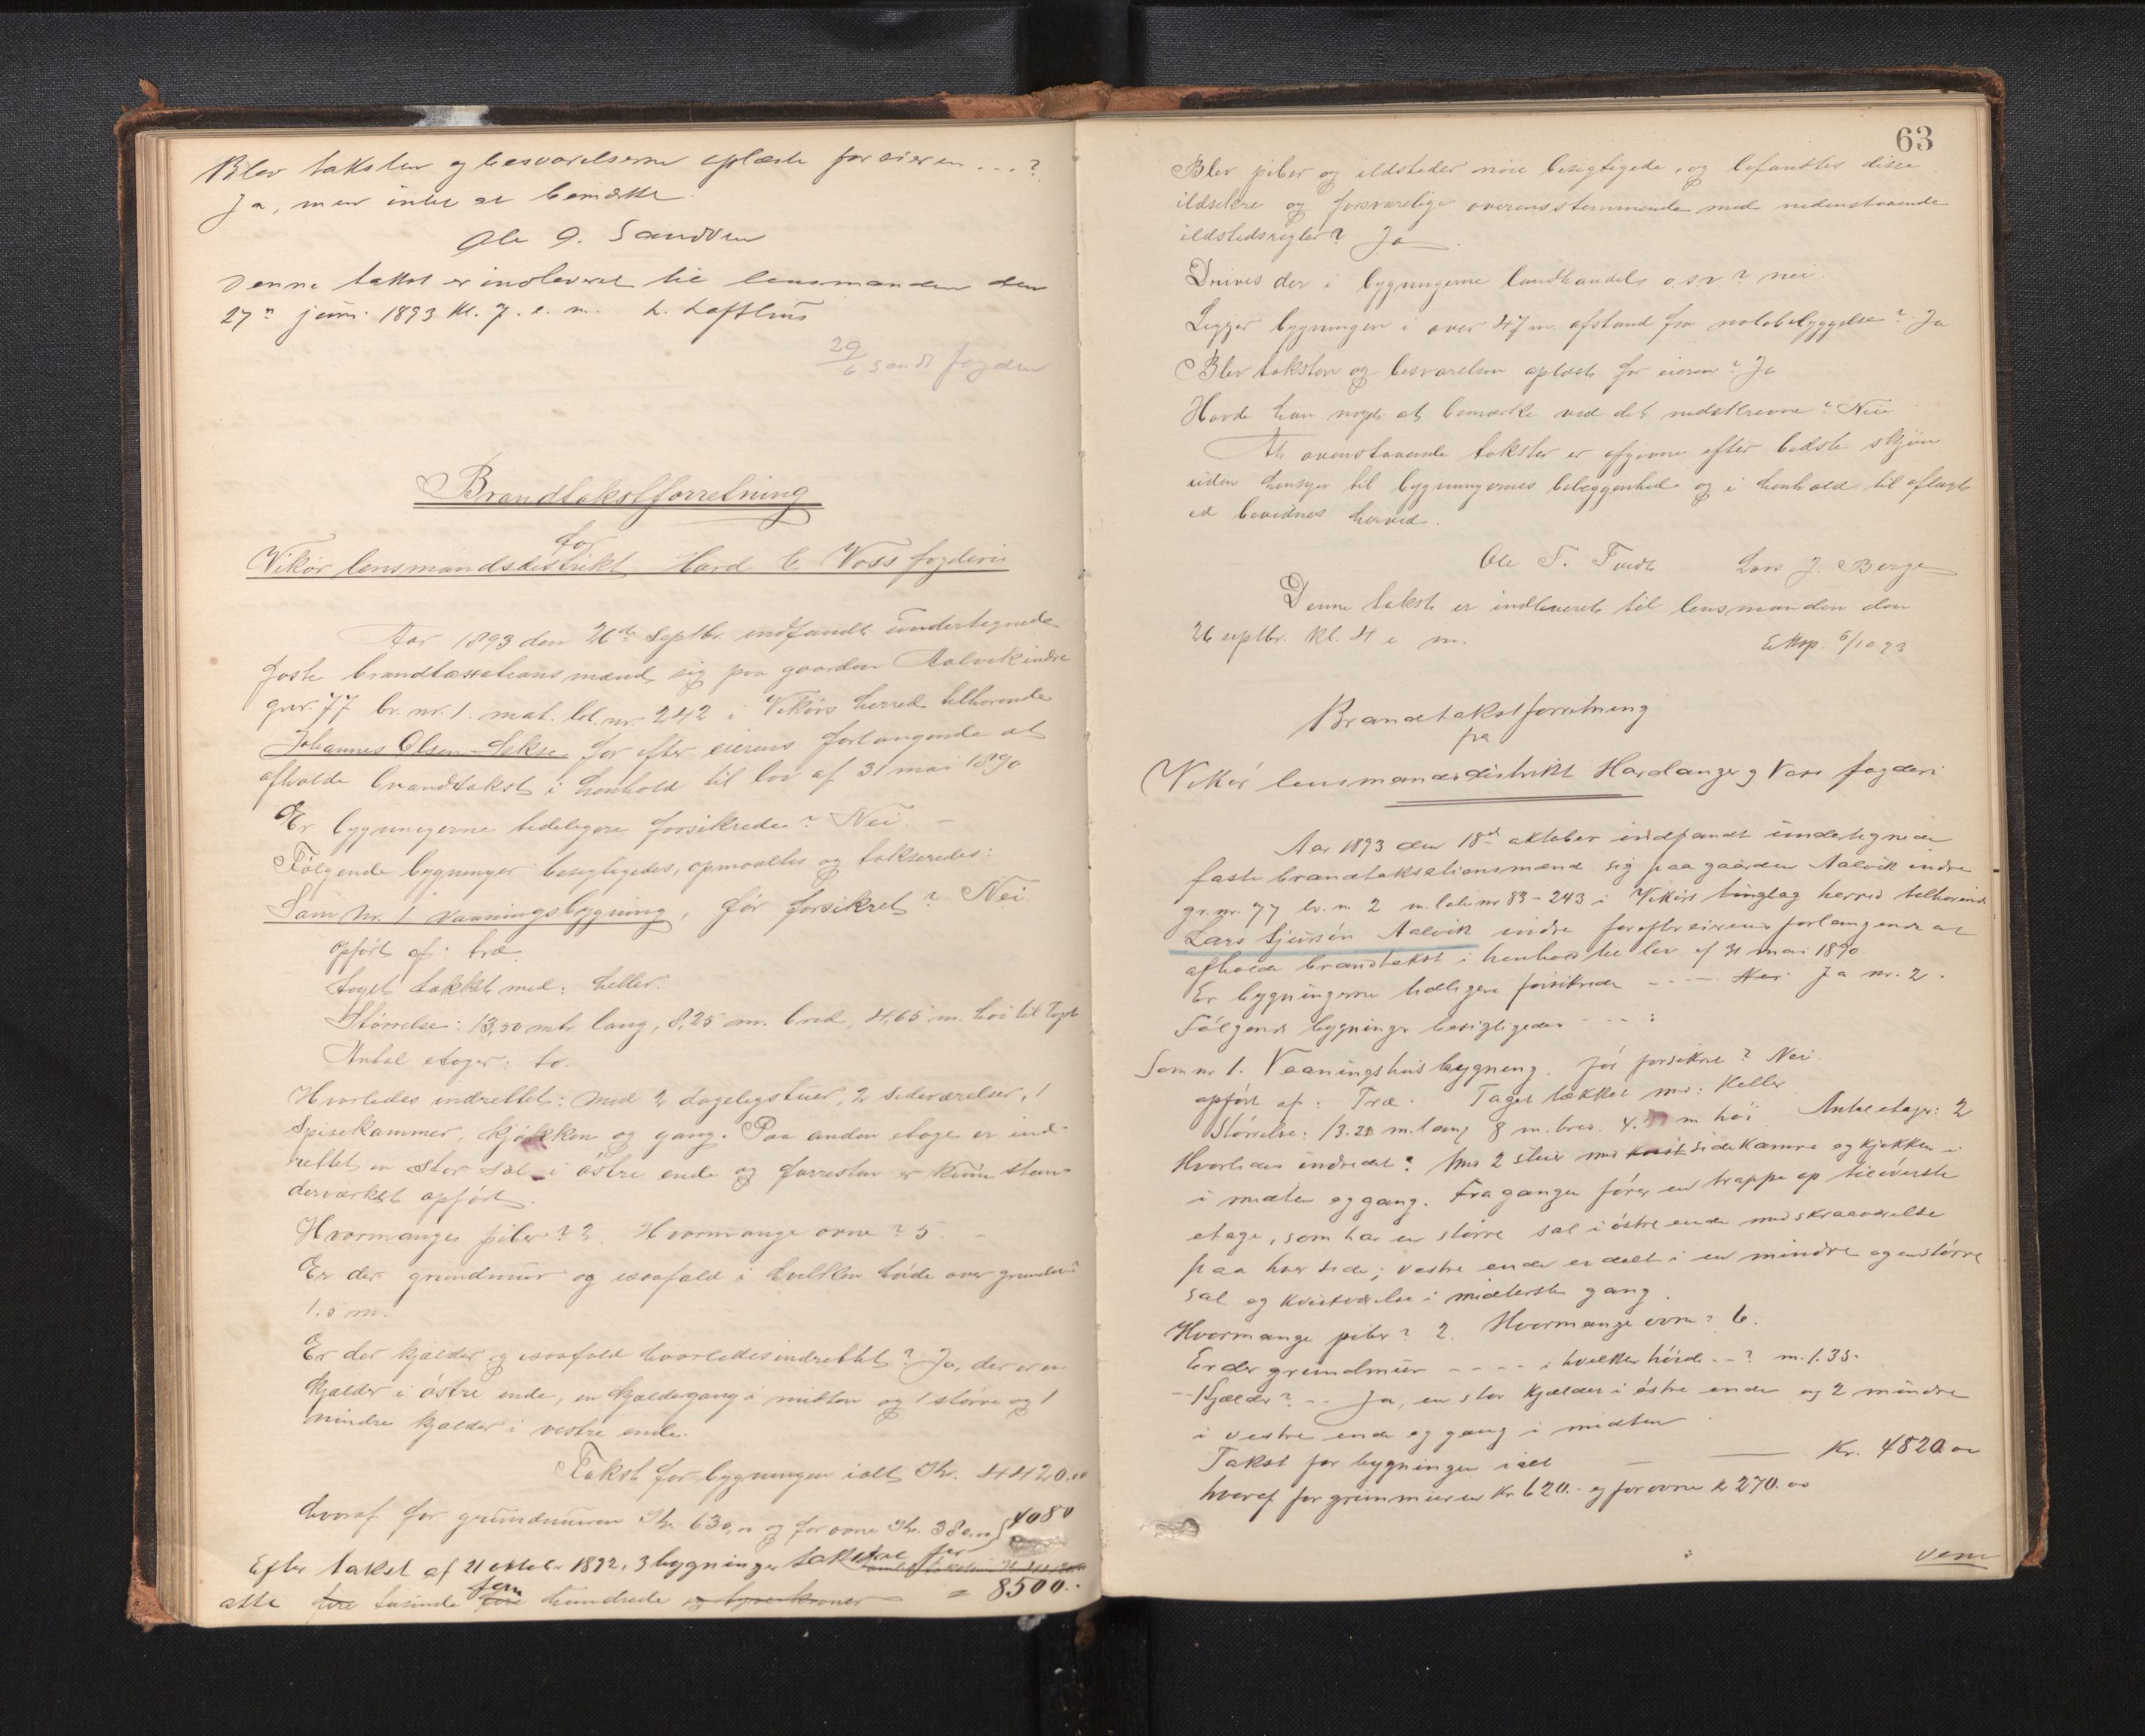 Blev taksten og besvarelserne oplæste for eieren ...?
Ja, men intet at bemærke.
Ole O. Sandven
Denne takst er indleveret til lensmanden den
27n juni 1893 kl. 7 e. m. L. Lofthus
29/6 sendt fogden
Brandtakstforretning
for
Vikør lensmandsdistrikt Hard & Voss fogderi
Aar 1893 den 26de septbr. indfandt undertegnede
faste brandtaxationsmænd sig paa gaarden Aalvik indre
gnr. 77 br. nr. 1. mat. lb. nr. 242 i Vikørs herred tilhørende
Johannes Olsen for efter eierens forlangende at
afholde brandtakst i henhold til lov af 31 mai 1890
Er bygningerne tidligere forsikrede? Nei. –
Følgende bygninger besigtigedes, opmaaltes og takseredes:
Som Nr. 1 Vaaningsbygning, før forsikret? Nei
opført af: træ.
taget tækket med: heller.
Størrelse: 13,20 mtr. lang, 8,25 m. bred, 4,65 m. høi til Toft
Antal etager: to.
Hvorledes indrettet: med 2 dagligstuer, 2 sideværelser, 1
Spisekammer, kjøkken og gang. Paa anden etage er ind-
rettet en stor sal i østre ende og forresten er kun sten-
derværket opført.
Hvormange piber? 2. Hvormange ovne? 5. –
Er der grundmur og isaafald i hvilken høide over grunden?
1.5 m.
Er der kjælder og isaafald hvorledes indrettet? Ja, der er en
kjælder i østre ende, en kjældergang i midten og 1 større og 1
mindre kjælder i vestre ende.
Takst for bygningen ialt Kr. 4420.00
hvoraf for grundmuren Kr. 630,00 og for ovne Kr. 380.00 4080
Efter takst af 21 oktobr 1892, 3 bygninger takstrne for
otte fire tusinde fem fire hundrede og tyve kroner = 8500.
63
Blev piber og ildsteder nøie besigtigede, og befandtes disse
ildsikre og forsvarlige overensstemmende med nedenstaaende
ildstedsregler? Ja.
Drives der i bygningerne landhandel o.s.v? nei.
Ligger bygningen i over 47 m. afstand fra nabobebyggelse? Ja
Blev taksten og besvarelsen oplæst for eieren? Ja
Havde han noget at bemærke ved det nedskrevne? Nei
At ovenstaaende takster er afgivne efter bedste skjøn
uden hensyn til bygningernes beliggenhed og i henhold til aflagt
ed bevidnes herved.
Ole T. Tvedt Lars J. Berge
Denne takst er indleveret til lensmanden den
26 septbr. kl. 4 e m.
Eksp. 6/10 93
Brandtakstforretning
på
Vikør lensmandsdistrikt Hardanger og Voss fogderi
Aar 1893 den 18de oktober indfandt undertegnede
faste brandtaksationsmænd sig paa gaarden Aalvik indre
gr. nr. 77 br. n. 2 m. løbenr 83 - 243 i Vikørs tinglag herred tilhørende
Lars Sjursen Aalvik indre for efter eierens forlangende at
afholde brandtakst i henhold til lov af 31 mai 1890.
Er bygningerne tidligere forsikrede – – – – Nei Ja nr. 2.
Følgende bygninger besigtigedes – – – :
Som nr 1. Vaaningshusbygning. før forsikret? Nei.
opført af: Træ. Taget tækket med: Heller
Størrelse: 13.20 m. lang 8 m. bred. 4. m høi Antal etager: 2
Hvorledes indredet? Med 2 stuer med sidekamre og kjøkken i
i midten og gang. Fra gangen fører en trappe op til øverste
etage, som har en større sal i østre ende med skraaværelse
paa hver side; vestre ende er delt i en mindre og en større
sal og kvistværelse i midterste gang.
Hvormange piber? 2. Hvormange ovne? 6.
Er der grundmur – – – – i hvilken høide – –? m. 1.35.
– – Kjælder? – – Ja, en stor kjælder i østre ende og 2 mindre
i vestre ende og gang i midten.
Takst for bygningen ialt — — Kr. 4820.00
hvoraf for grunmuren Kr 620.- og for ovne kr 270.00
vend